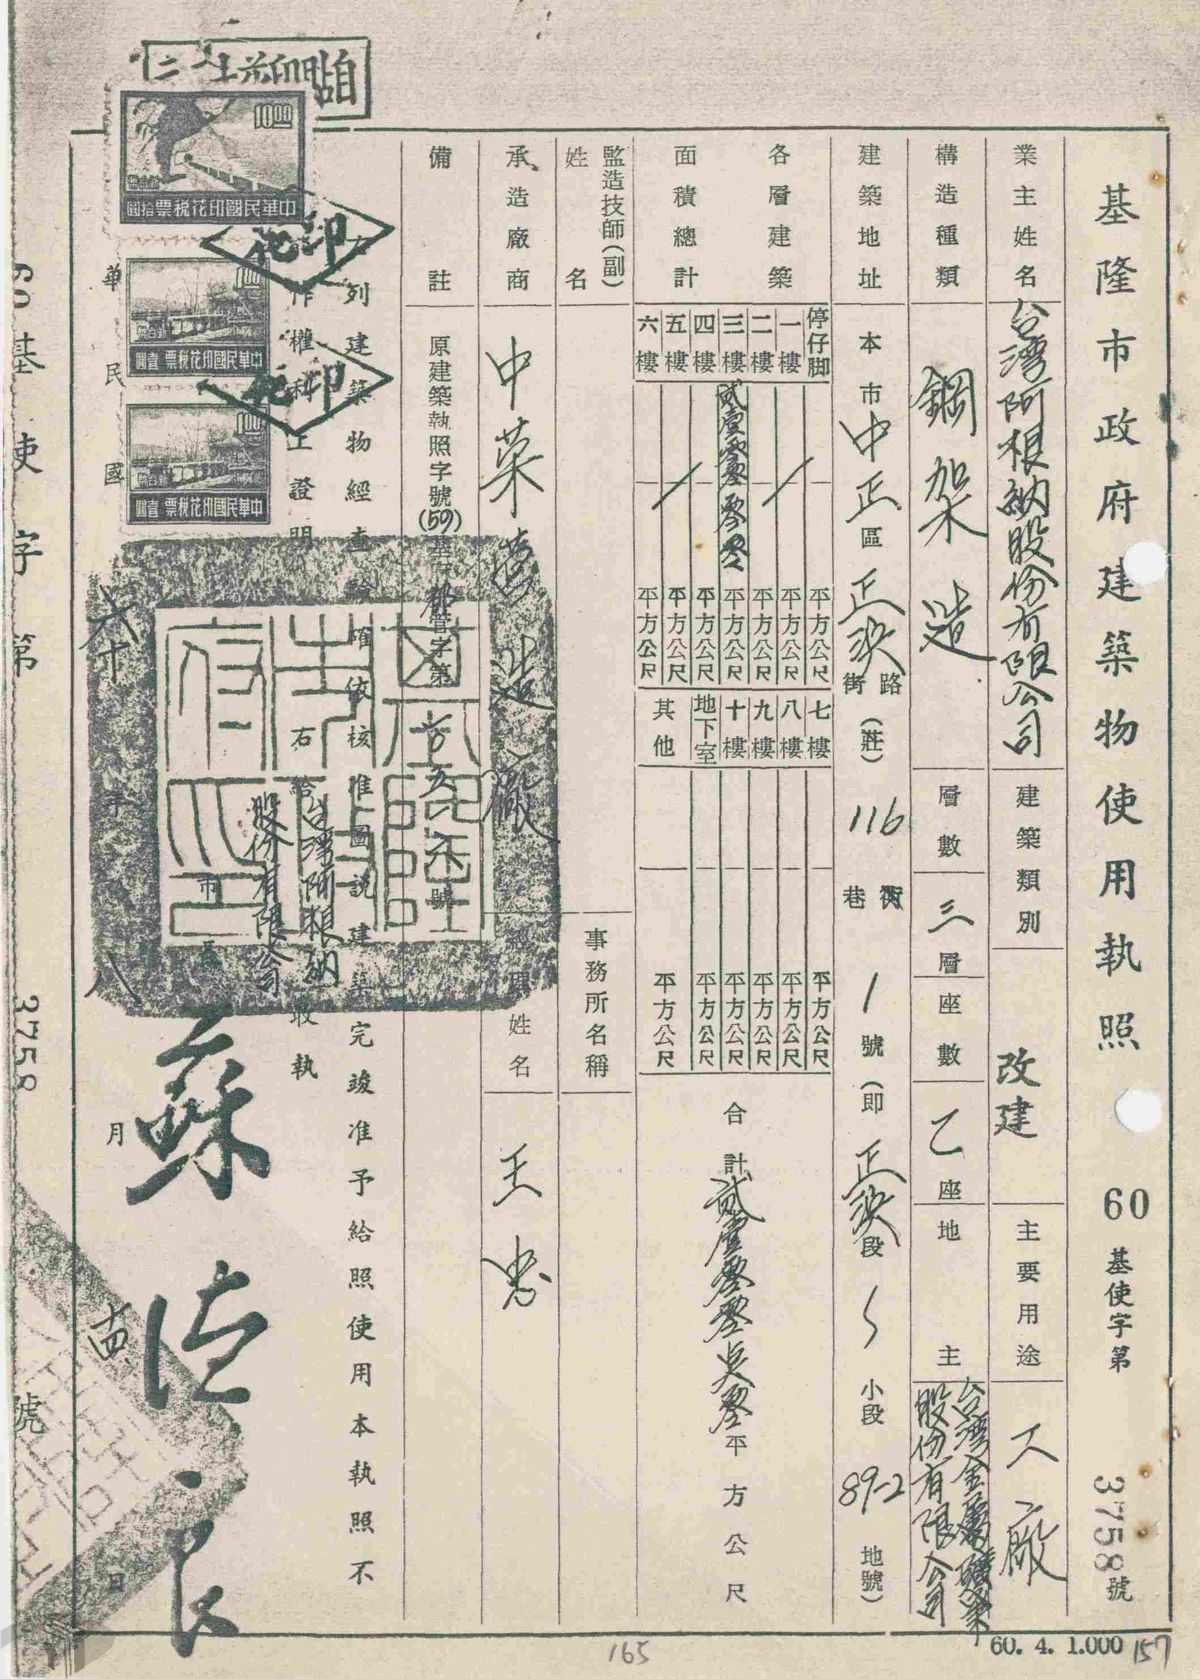 基隆市政府建築物使用執照
60 基使字第 3758 號
業主姓名 台灣阿根納股份有限公司
建築類別 改建
主要用途 工廠
構造種類 鋼架造
層數 三層
座數 乙座
地主 台灣金屬礦業股份有限公司
建築地址 本市中正區正濱街路(莊) 116 巷 1 號(即正濱段 小段 89-2 地號)
各層建築面積總計
停仔脚 平方公尺
一樓 平方公尺
二樓 平方公尺
三樓 平方公尺
四樓 平方公尺
五樓 平方公尺
六樓 平方公尺
七樓 平方公尺
八樓 平方公尺
九樓 平方公尺
十樓 平方公尺
地下室 平方公尺
其他 平方公尺
合計 平方公尺
監造技師(副)姓名
事務所名稱
承造廠商
姓名 王
備註 原建築執照字號(59)基 管字第 號
右列建築物經查驗確依核准圖說建築完竣准予給照使用本執照不
作權利上證明
右給 台灣阿根納股份有限公司 收執
市長 蘇德良
中華民國六十年八月十四日
10.00
中華民國印花稅票 拾圓
1.00
中華民國印花稅票 壹圓
1.00
中華民國印花稅票 壹圓
印花
印花
60基使字第 3758 號
60. 4. 1.000
157
165